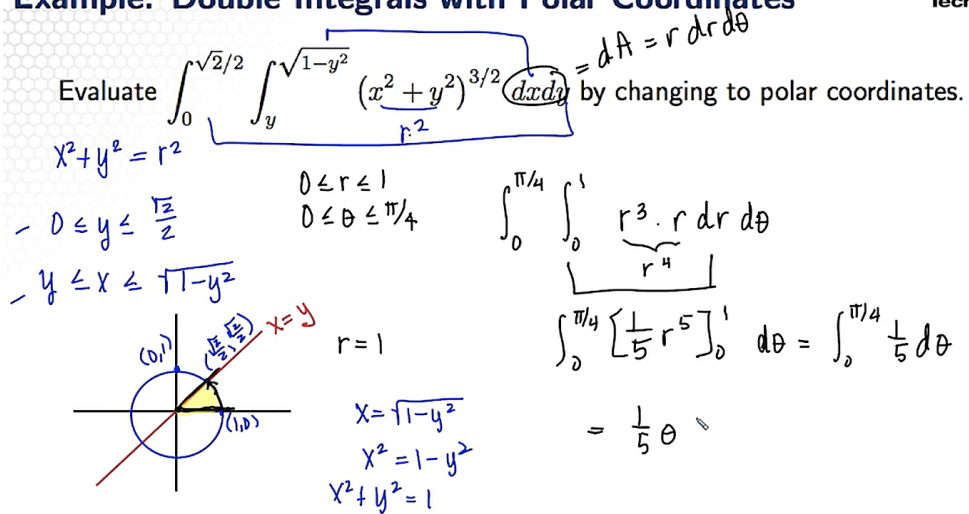 Example: Double Integrals with Polar Coordinates
Evaluate ∫₀^{√2/2} ∫_y^{√(1−y²)} (x² + y²)^{3/2} dxdy by changing to polar coordinates.
= dA = r dr dθ
r²
x² + y² = r²
− 0 ≤ y ≤ √2/2
− y ≤ x ≤ √(1−y²)
0 ≤ r ≤ 1
0 ≤ θ ≤ π/4
∫₀^{π/4} ∫₀^1 r³ · r dr dθ
r⁴
∫₀^{π/4} [1/5 r⁵]₀^1 dθ = ∫₀^{π/4} 1/5 dθ
= 1/5 θ
(0,1)
(√2/2, √2/2)
x = y
(1,0)
r = 1
x = √(1−y²)
x² = 1 − y²
x² + y² = 1